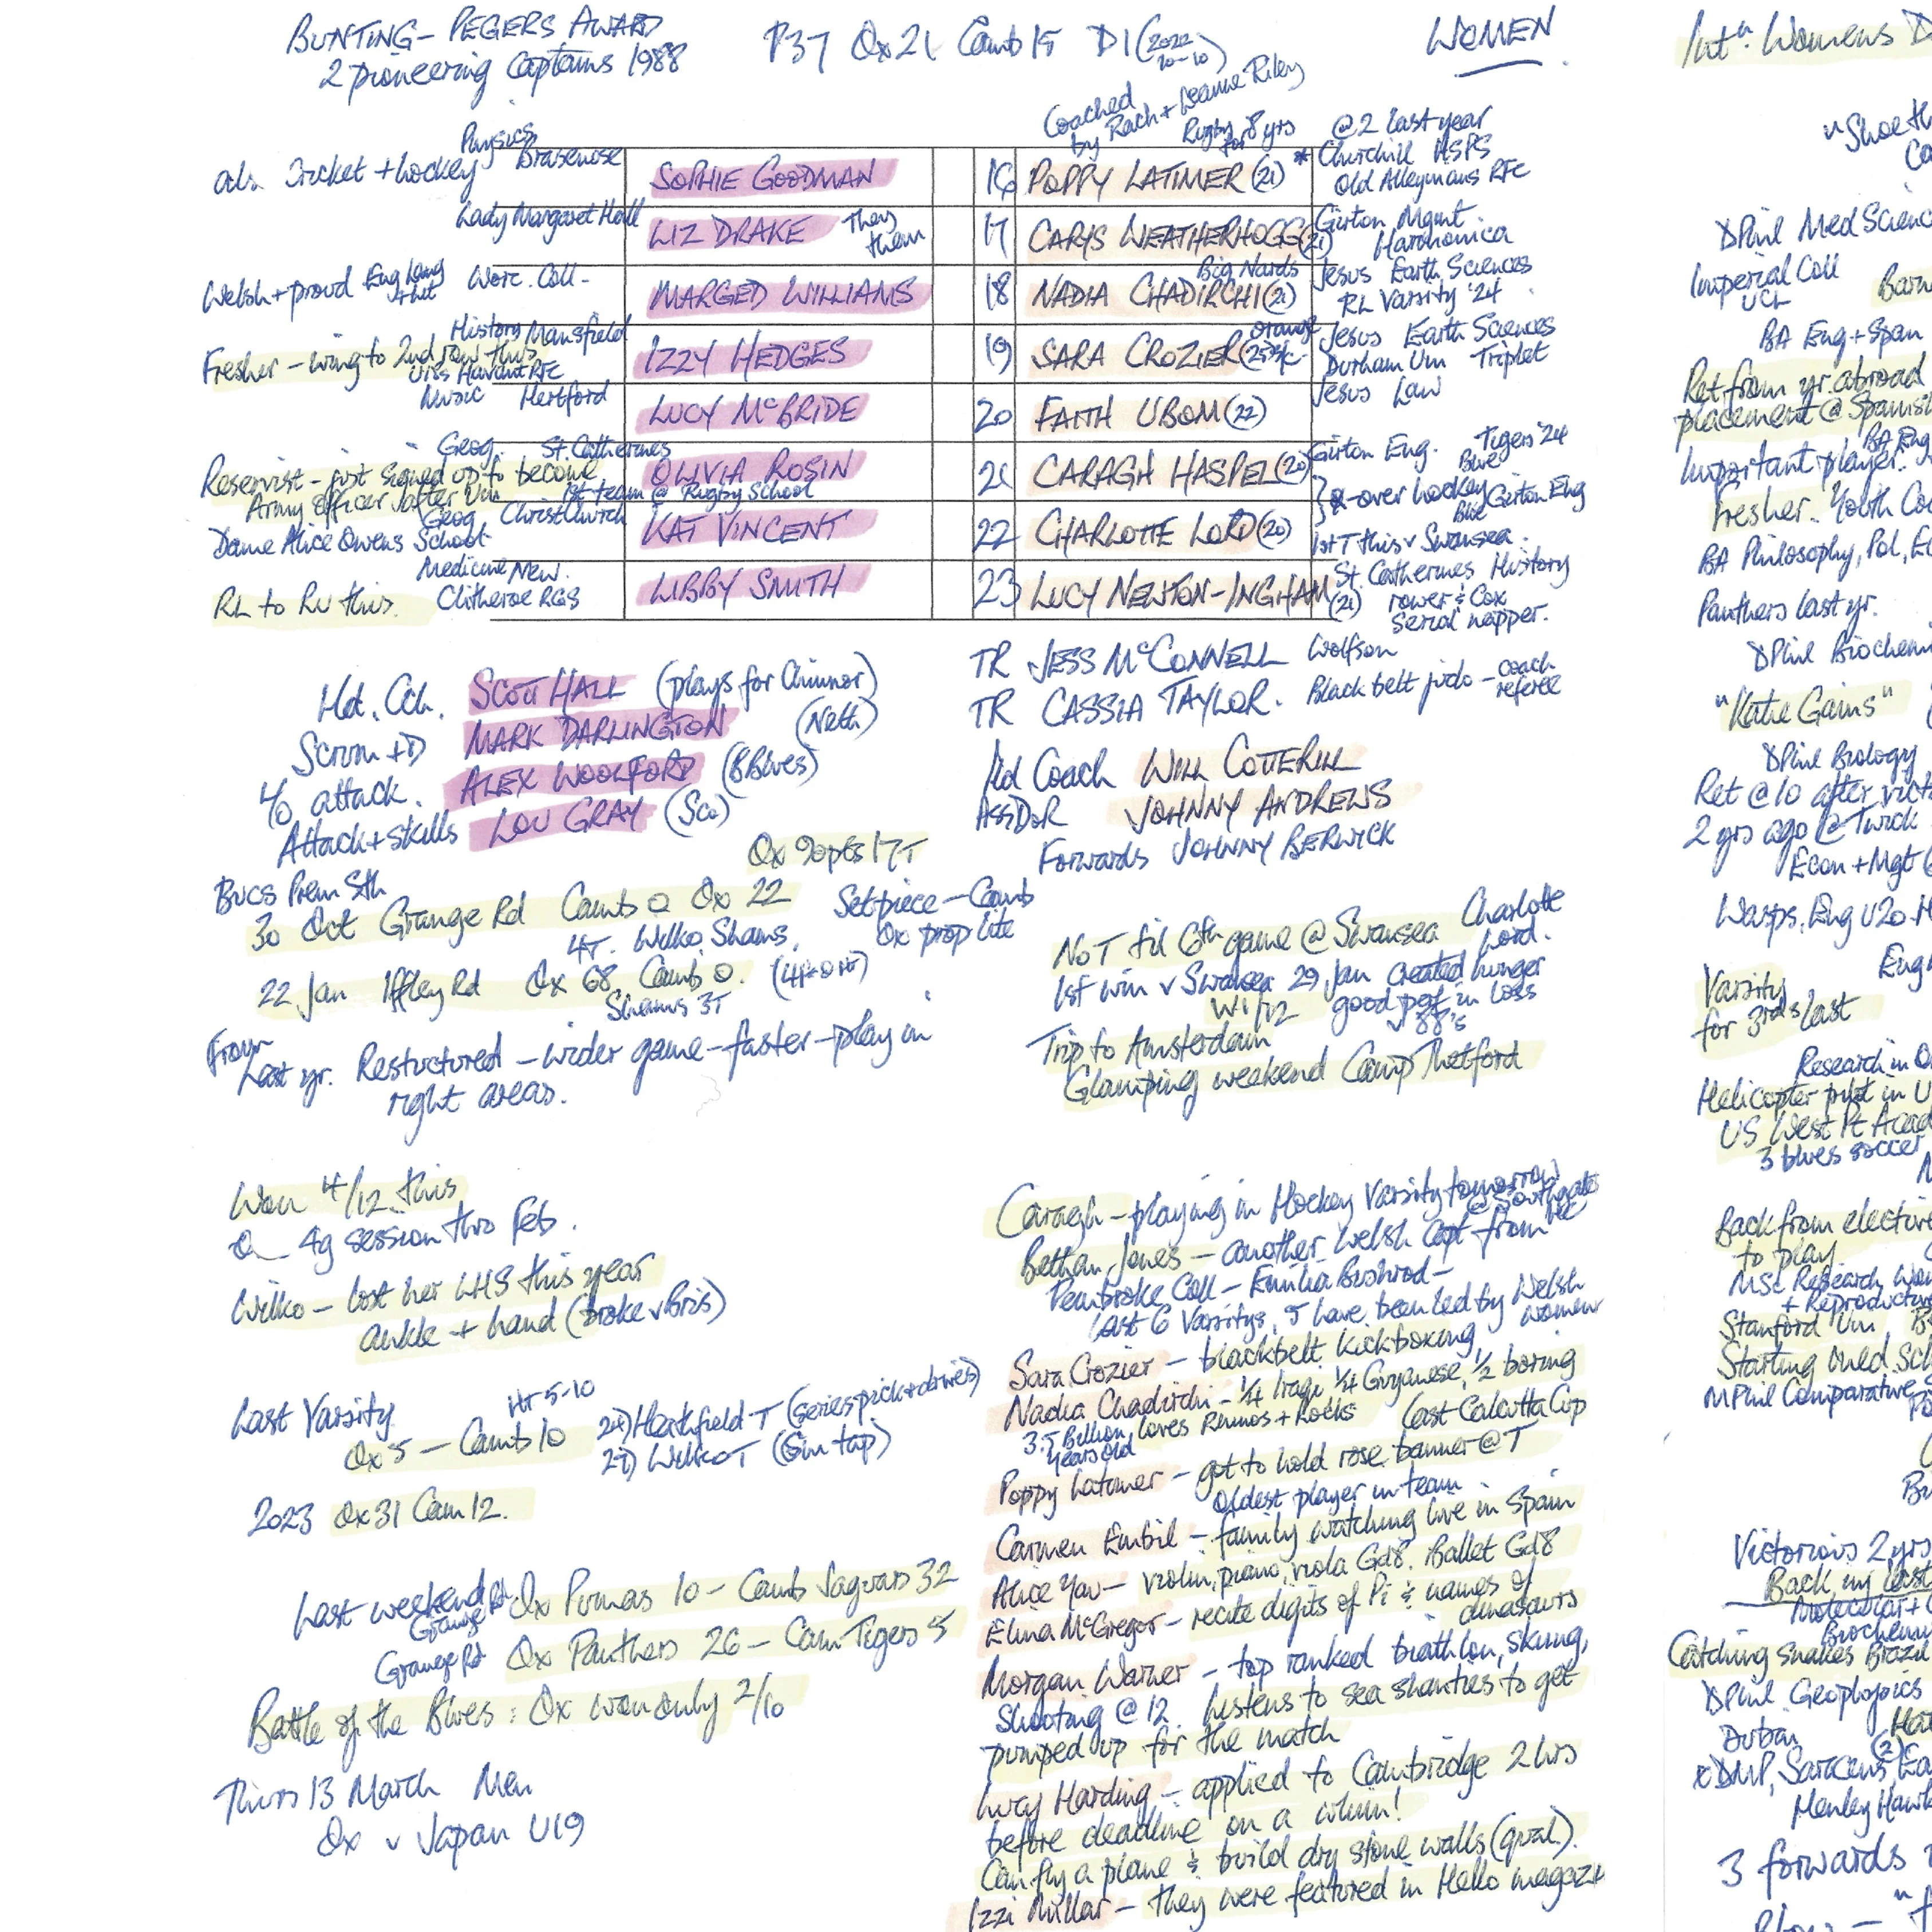 BUNTING-PEGERS AWARD
2 pioneering Captains 1988
P37 Ox 21 Camb 15 D1 (2022 10-10)
WOMEN
Coached by Rach + Leanne Riley
Rugby for 8 yrs
Physics
Brasenose
also Cricket + hockey
SOPHIE GOODMAN
16 POPPY LATIMER (21) *
@2 last year
Churchill HSPS
Old Alleynians RFC
Lady Margaret Hall
LIZ DRAKE They them
17 CARYS WEATHERHOGG (21)
Girton Mgmt.
Harmonica
Welsh + proud Eng Lang + Lit Worc. Coll-
MARGED WILLIAMS
Big Nards
18 NADIA CHADIRCHI (21)
Jesus Earth Sciences
RL Varsity '24
History Mansfield
Fresher - wing to 2nd row this
U18s Havant RFC
IZZY HEDGES
19 SARA CROZIER (25)
orange s/c
Jesus Earth Sciences
Durham Uni Triplet
Music Hertford
LUCY McBRIDE
20 FAITH UBOM (22)
Jesus Law
Geog. St. Catherines
Reservist - just signed up to become
Army officer after Uni
OLIVIA ROSIN
21 CARAGH HASPEL (20)
Girton Eng. Tigers '24
Blue
x-over hockey
1st team @ Rugby School
Geog Christ Church
Dame Alice Owens School
KAT VINCENT
22 CHARLOTTE LORD (20)
Blue Girton Eng
1st T this v Swansea.
Medicine New.
RL to RU this. Clitheroe RGS
LIBBY SMITH
23 LUCY NEWTON-INGHAM (21)
St. Catherines History
rower & Cox
Serial napper.
Hd. Cch. SCOTT HALL (plays for Chinnor)
Scrum + D MARK DARLINGTON (Neth)
L/O attack. ALEX WOOLFORD (8 Blues)
Attack + skills LOU GRAY (Sco)
TR JESS McCONNELL Wolfson
TR CASSIA TAYLOR. Black belt judo - coach referee
Hd Coach WILL COTTERILL
Ass DoR JOHNNY ANDREWS
Forwards JOHNNY BERWICK
Ox 90pts 17T
BUCS Prem Sth
30 Oct Grange Rd Camb 0 Ox 22
4T. Wilko. Shams.
Set piece - Camb
Ox prop lite
22 Jan Iffley Rd Ox 68 Camb 0.
Shams 3T
From
Last yr. Restructured - wider game - faster - play in
right areas.
No T til 6th game @ Swansea Charlotte Lord.
1st win v Swansea 29 Jan created hunger
W1/12 good perf in loss
v Bb's
Trip to Amsterdam
Glamping weekend Camp Thetford
Won 4/12 this
4g session thro Feb.
Wilko - lost her LHS this year
ankle + hand (broke v Bris)
Last Varsity HT 5-10
Ox 5 - Camb 10
24) Heathfield T (series pick + drives)
27) Wilko T (5m tap)
2023 Ox 31 Cam 12.
Last weekend Grange Rd Ox Pumas 10 - Camb Jaguars 32
Grange Rd Ox Panthers 26 - Cam Tigers 5
Battle of the Blues: Ox won only 2/10
Thurs 13 March Men
Ox v Japan U19
Caragh - playing in Hockey Varsity tomorrow
@ Southgate HC
Bethan Jones - another Welsh Capt from
Pembroke Coll - Emilia Bushrod -
last 6 Varsitys, 5 have been led by Welsh women
Sara Crozier - blackbelt kickboxing
Nadia Chadirchi - 1/4 Iraqi, 1/4 Guyanese, 1/2 boring
3.5 Billion years old loves Rhinos + Rocks
last Calcutta Cup
Poppy Latimer - got to hold rose banner @ T
oldest player in team
Carmen Embil - family watching live in Spain
Alice Yau - violin, piano, viola Gd8. Ballet Gd8
Elina McGregor - recite digits of Pi & names of
dinosaurs
Morgan Warner - top ranked biathlon, skiing,
shooting @ 12. listens to sea shanties to get
pumped up for the match
Lucy Harding - applied to Cambridge 2 hrs
before deadline on a whim!
Can fly a plane & build dry stone walls (qual).
Izzi Millar - they were featured in Hello
Int'l Womens D
"Shoe th
DPhil Med Scienc
Imperial Coll
UCL
BA Eng + Span
Ret from yr. abroad
placement @ Spanish
BA Eng
Important player.
fresher. Youth Co
BA Philosophy, Pol, E
Panthers last yr.
DPhil Biochem
"Katie Gains"
DPhil Biology
Ret @ 10 after vict
2 yrs ago @ Twick
Econ + Mgt
Wasps. Eng U20
Eng
Varsity
for 3rds last
Research in O
Helicopter pilot in U
US West Pt Acad
3 blues soccer
Back from elective
to play
MSc Research Wom
+ Reproductive
Stanford Uni
Starting med. Sc
MPhil Comparative
Victorious 2 yrs
Back in last
Molecular +
Biochem
Catching snakes Brazil
DPhil Geophysics
Durban
xDMP, Saracens, Ea
Henley Hawk
3 forwards